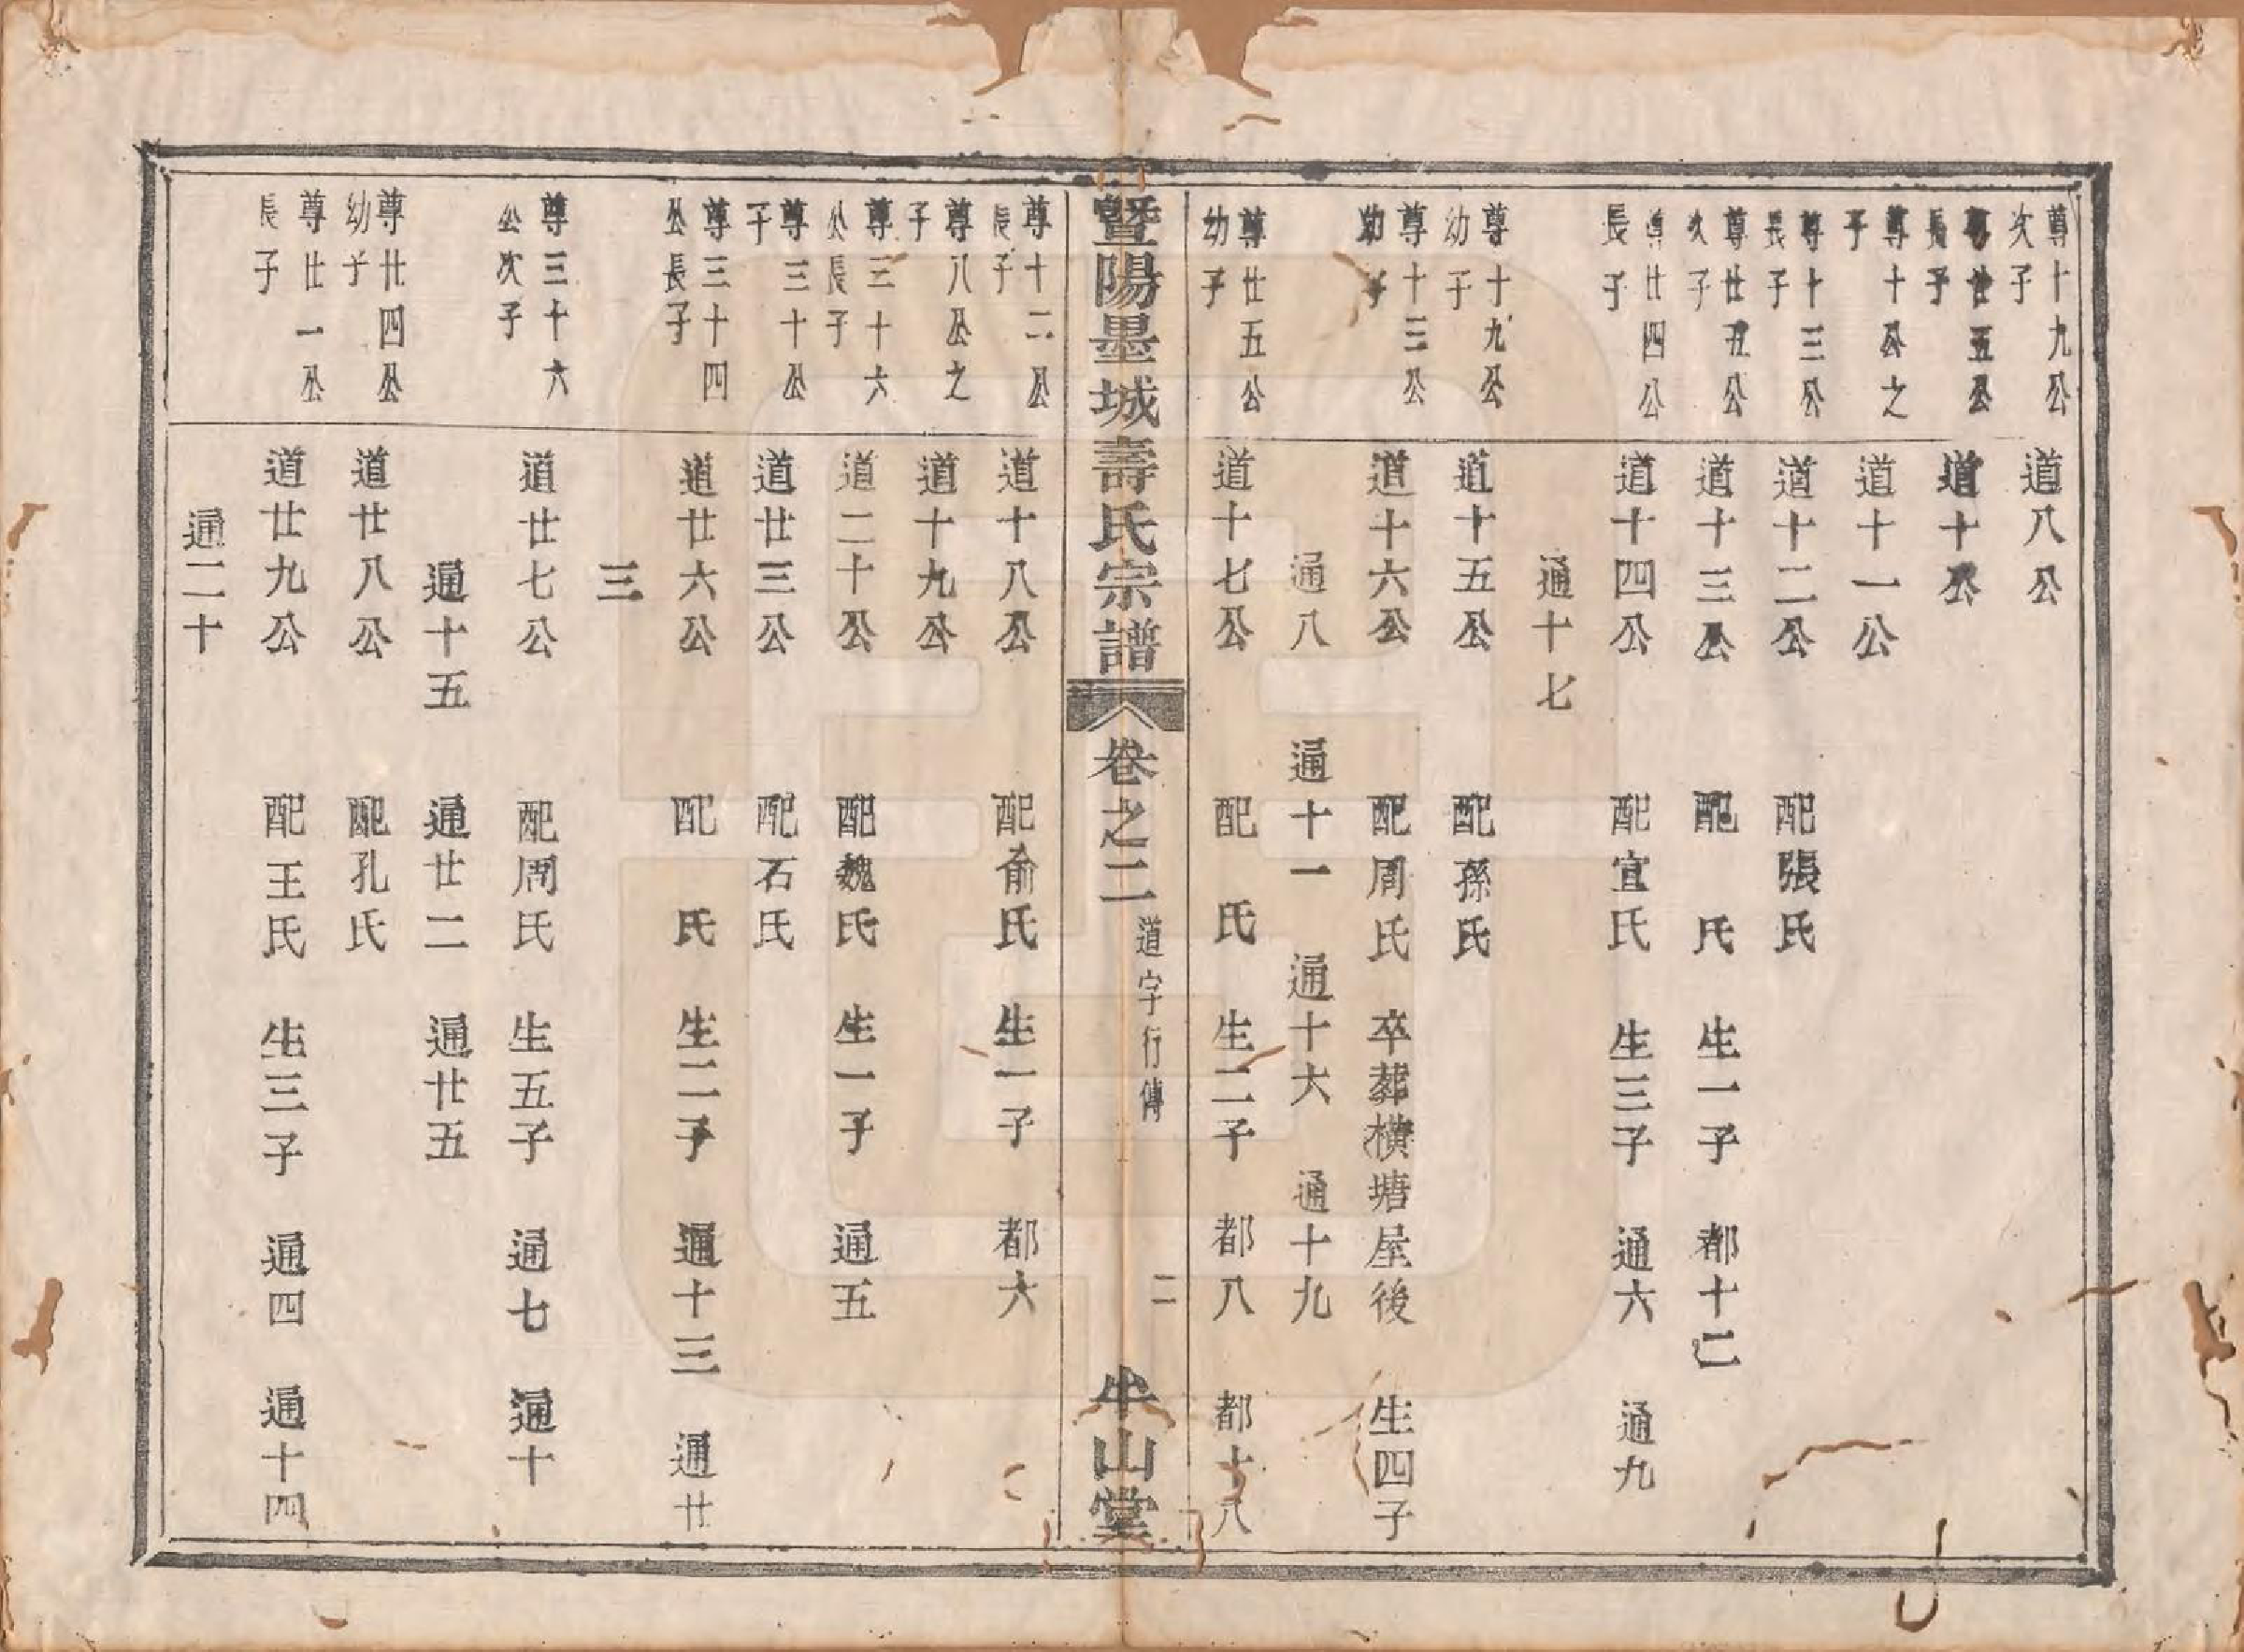 尊十九公次子
道八公
尊廿五公長子
道十公
尊十公之子
道十一公
尊十三公長子
道十二公 配張氏
尊廿五公次子
道十三公 配 氏 生一子 都十二
尊廿四公長子
道十四公 配宣氏 生三子 通六 通九
通十七
尊十九公幼子
道十五公 配孫氏
尊十三公幼子
道十六公 配周氏 卒葬橫塘屋後 生四子
通八 通十一 通十六 通十九
尊廿五公幼子
道十七公 配 氏 生二子 都八 都十八
暨陽墨城壽氏宗譜 卷之二 道字行傳 二 半山堂
尊十二公長子
道十八公 配俞氏 生一子 都六
尊八公之子
道十九公
尊三十六公長子
道二十公 配魏氏 生一子 通五
尊三十公子
道廿三公 配石氏
尊三十四公長子
道廿六公 配 氏 生二子 通十三 通廿
三
尊三十六公次子
道廿七公 配周氏 生五子 通七 通十
通十五 通廿二 通廿五
尊廿四公幼子
道廿八公 配孔氏
尊廿一公長子
道廿九公 配王氏 生三子 通四 通十四
通二十